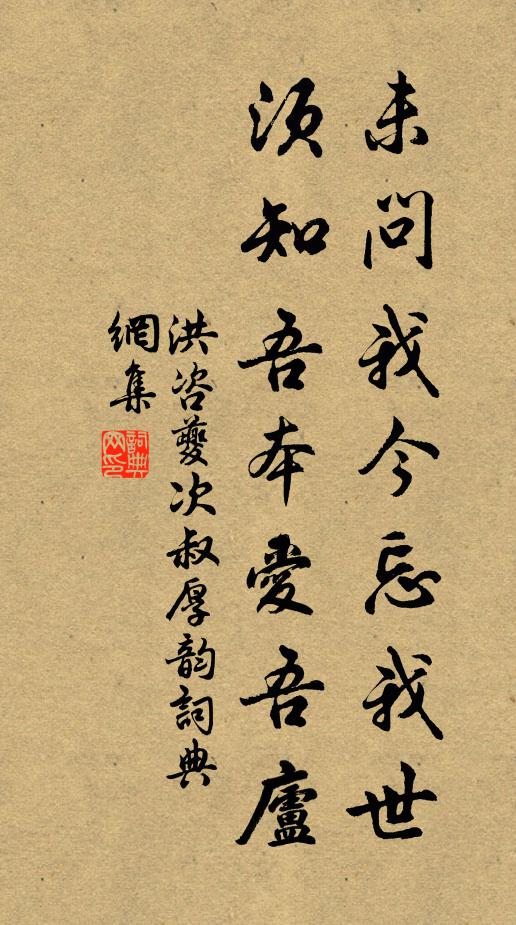 未問我今忘我世
須知吾本愛吾廬
洪咨夔次叔厚韵詞典
網集
詞典網印